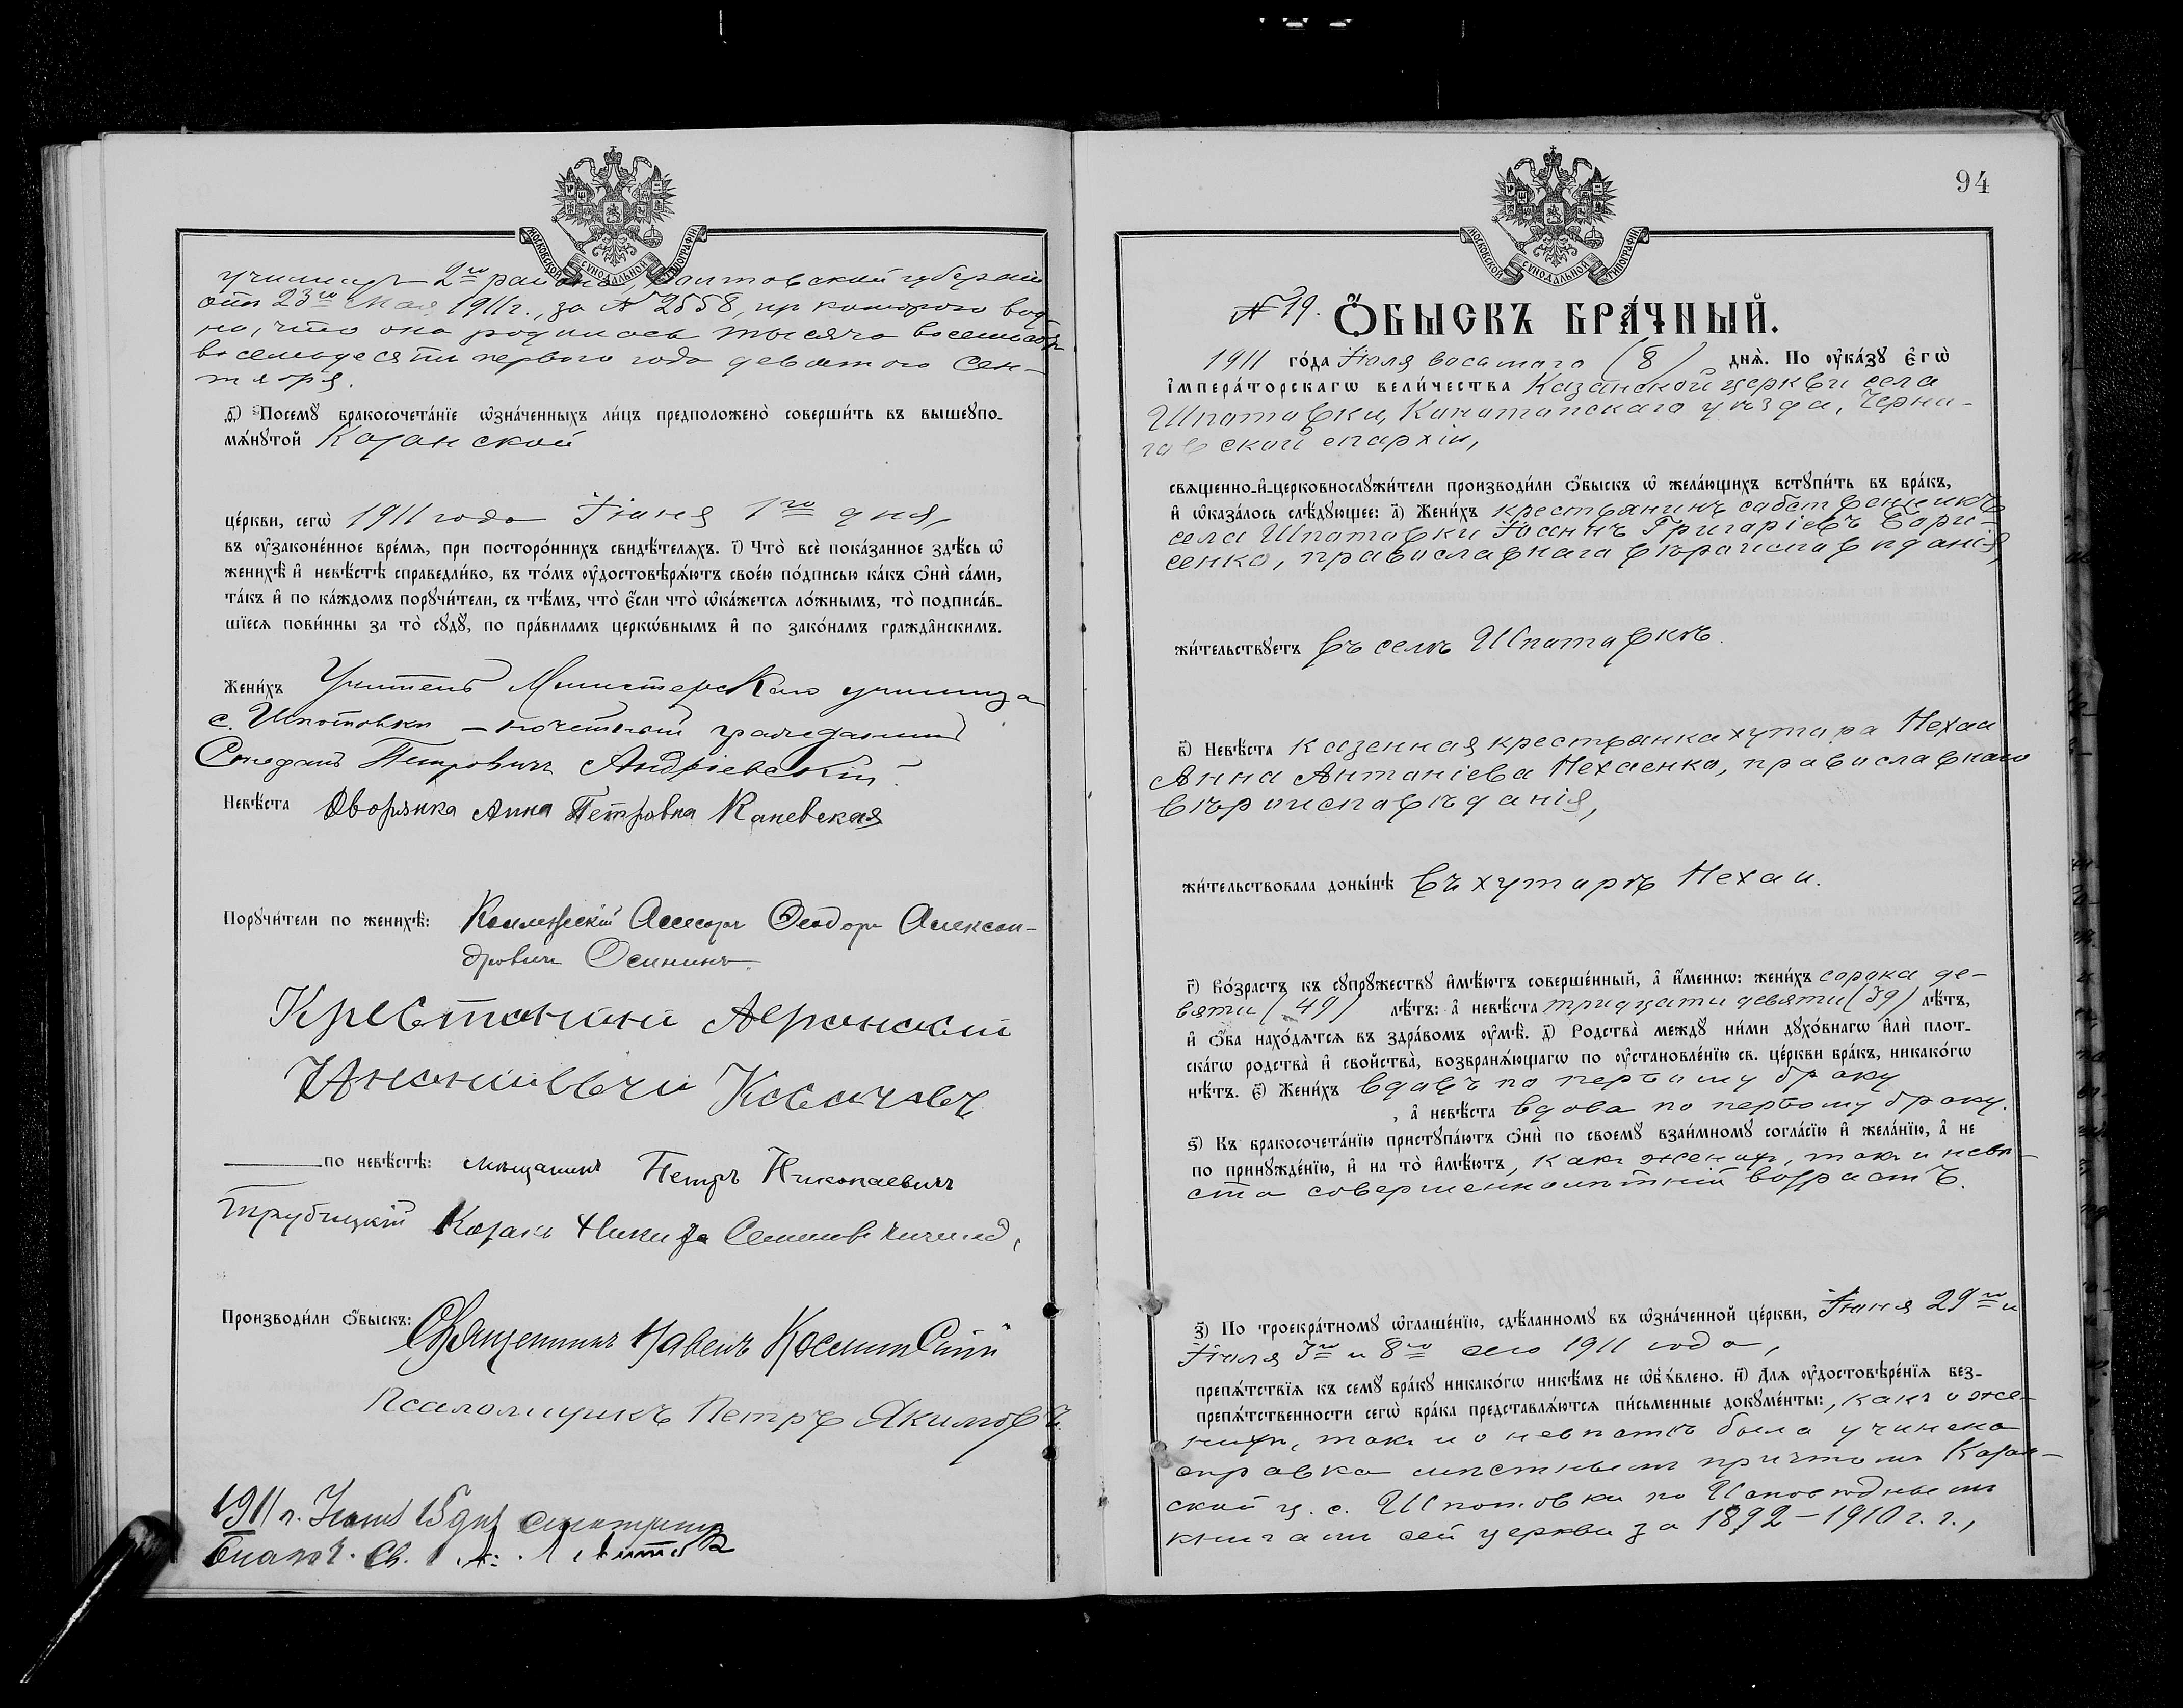 МОСКОВСКОЙ СѴНОДАЛЬНОЙ ТИПОГРАФІИ
училищъ 2го района, губерніи
отъ 23го Мая 1911 г., за № 2558, из котораго вид-
но, что она родилась тысяча восемьсотъ
восемьдесяти перваго года девятаго Сен-
тября.
д҃) Посемꙋ̀ бракосочета́нїе ѡ҆зна́ченныхъ ли́цъ предположено̀ соверши́ть въ вышеꙋпо-
мѧ́нꙋтой Казанской
це́ркви, сегѡ̀ 1911 года Іюня 1го дня,
въ ᲂу҆зако́ненное вре́мѧ, при посторо́ннихъ свидѣ́телѧхъ. і҃) Что̀ всѐ пока́занное здѣ́сь ѡ҆
женихѣ̀ и҆ невѣ́стѣ справедли́во, въ то́мъ ᲂу҆достовѣрѧ́ютъ свое́ю по́дписью ка́къ ѻ҆нѝ са́ми,
та́къ и҆ по ка́ждомъ порꙋчи́тели, съ тѣ́мъ, что̀ є҆́сли что̀ ѡ҆ка́жетсѧ ло́жнымъ, то̀ подписа́в-
шїесѧ пови́нны за то̀ сꙋдꙋ̀, по пра́виламъ церкѡ́внымъ и҆ по зако́намъ гражда̂нскимъ.
Жени́хъ Учитель Министерскаго училища
с. Шпотовки – почетный гражданинъ
Стефанъ Петровичъ Андріевскій
Невѣ́ста Дворянка Анна Петровна Каневская
Порꙋчи́тели по женихѣ̀: Коллежскій Ассесоръ Ѳеодоръ Алексан-
дровичъ Осининъ
Крестонини
——по невѣ́стѣ: мѣщанинъ Петръ Николаевичъ
Трубицкій Козакъ Никита
Производи́ли ѻ҆́быскъ: Священникъ Павелъ
Псаломщикъ Петръ Якимовъ.
1911 г. Іюня 15 дня смотрѣлъ
Благоч. Св.
94
МОСКОВСКОЙ СѴНОДАЛЬНОЙ ТИПОГРАФІИ
№ 19. Ѻ҆́БЫСКЪ БРА́ЧНЫЙ.
1911 го́да Іюля восьмаго (8) днѧ̀. По ᲂу҆ка́зꙋ є҆гѡ̀
і҆мпера́торскагѡ вели́чества Казанской церкви села
Шпотовки, Конотопскаго уѣзда, Черни-
говской епархіи,
свѧщенно-и҆-церковнослꙋжи́тели производи́ли ѻ҆́быскъ ѡ҆ жела́ющихъ встꙋпи́ть въ бра́къ,
и҆ ѡ҆каза́лось слѣ́дꙋющее: а҃) Жени́хъ крестьянинъ собственникъ
села Шпотовки Іоаннъ Григоріевъ Бори-
сенко, православнаго вѣроисповѣданія,
жи́тельствꙋетъ въ селѣ Шпотовкѣ.
в҃) Невѣ́ста казенная крестьянка хутора Нехаи
Анна Антоніева Нехаенко, православнаго
вѣроисповѣданія,
жи́тельствовала доны́нѣ въ хуторѣ Нехаи.
г҃) Во́зрастъ къ сꙋпрꙋ́жествꙋ и҆мѣ́ютъ соверше́нный, а҆ и҆́менно: жени́хъ сорока де-
вяти (49) лѣ́тъ: а҆ невѣ́ста тридцати девяти (39) лѣ́тъ,
и҆ ѻ҆́ба нахо́дѧтсѧ въ здра́вомъ ᲂу҆мѣ̀. д҃) Родства̀ междꙋ̀ ни́ми дꙋхо́внагѡ и҆лѝ плот-
ска́гѡ родства̀ и҆ сво́йства̀, возбранѧ́ющагѡ по ᲂу҆становле́нїю св. це́ркви бра́къ, никако́гѡ
нѣ́тъ. є҃) Жени́хъ вдовъ по первому браку
, а҆ невѣ́ста вдова по первому браку.
ѕ҃) Къ бракосочета́нїю пристꙋпа́ютъ ѻ҆нѝ по своемꙋ̀ взаи́мномꙋ согла́сїю и҆ жела́нїю, а҆ не
по принꙋжде́нїю, и҆ на то̀ и҆мѣ́ютъ, какъ женихъ, такъ и невѣ-
ста совершеннолѣтній возрастъ.
з҃) По троекра́тномꙋ ѡ҆глаше́нїю, сдѣ́ланномꙋ въ ѡ҆зна́ченной це́ркви, Іюня 29го и
Іюля 3го и 8го сего 1911 года,
препѧ́тствїѧ къ семꙋ̀ бра́кꙋ никако́гѡ никѣ́мъ не ѡ҆б̾ѧ́влено. и҃) Длѧ ᲂу҆достовѣре́нїѧ без-
препѧ́тственности сегѡ̀ бра́ка представлѧ́ютсѧ пи́сьменные докꙋме́нты:, какъ о же-
нихѣ, такъ и о невѣстѣ была учинена
справка мѣстнымъ причтомъ Казан-
ской ц. с. Шпотовки по Исповѣднымъ
книгамъ сей церкви за 1892–1910 г. г.,